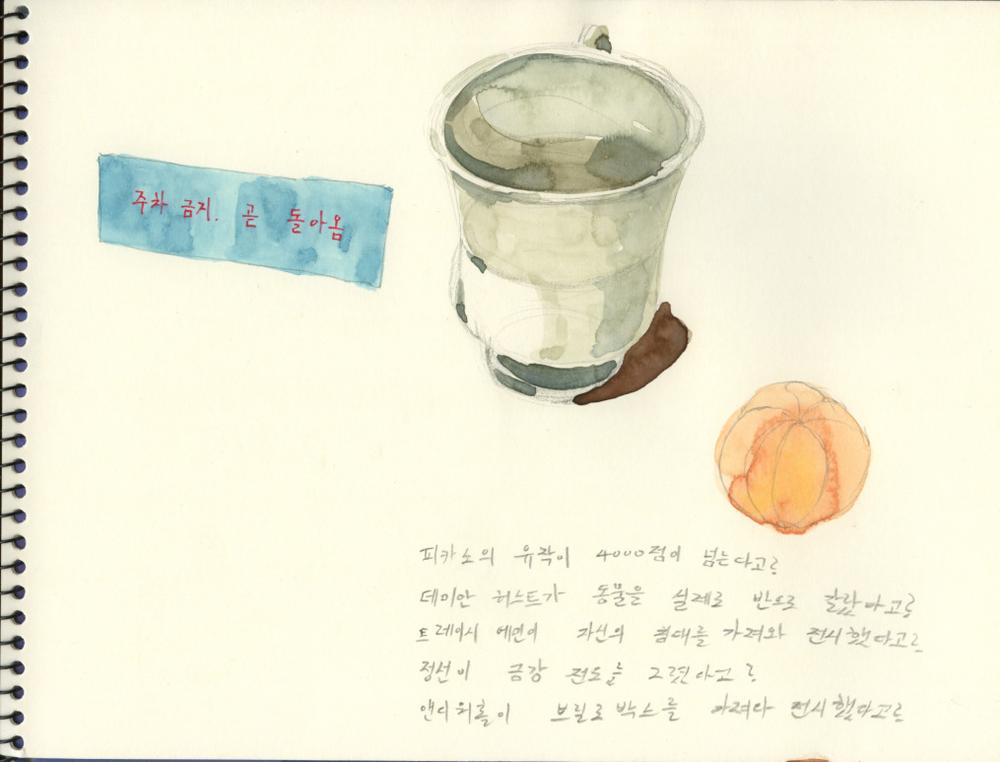 주차 금지. 곧 돌아옴
피카소의 유작이 4000점이 넘는다고?
데미안 허스트가 동물을 실제로 반으로 갈랐다고?
트레이시 에민이 자신의 침대를 가져와 전시했다고?
정선이 금강 전도를 그렸다고?
앤디워홀이 브릴로 박스를 가져다 전시했다고?